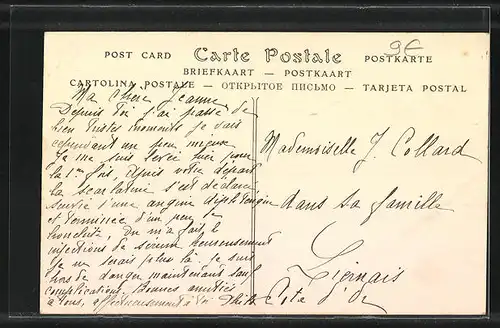 9€
POST CARD Carte Postale POSTKARTE
BRIEFKAART — POSTKAART
CARTOLINA POSTALE — ОТКРЫТОЕ ПИСЬМО — TARJETA POSTAL
Ma chère Jeanne
Depuis toi j'ai passé de
bien tristes moments je vais
cependant un peu mieux
Je me suis levée pour
la 1ère fois, Après votre départ
la scarlatine s'est déclarée
suivie d'une angine diphtérique
et terminée d'un peu de
bronchite, On m'a fait
infections de sérum heureusement
je ne serais plus là. Je suis
hors de danger maintenant sauf
complications. Bonnes amitiés
à tous, affectueusement à toi
Mademoiselle J. Collard
dans sa famille
Lignais
Côte d'Or